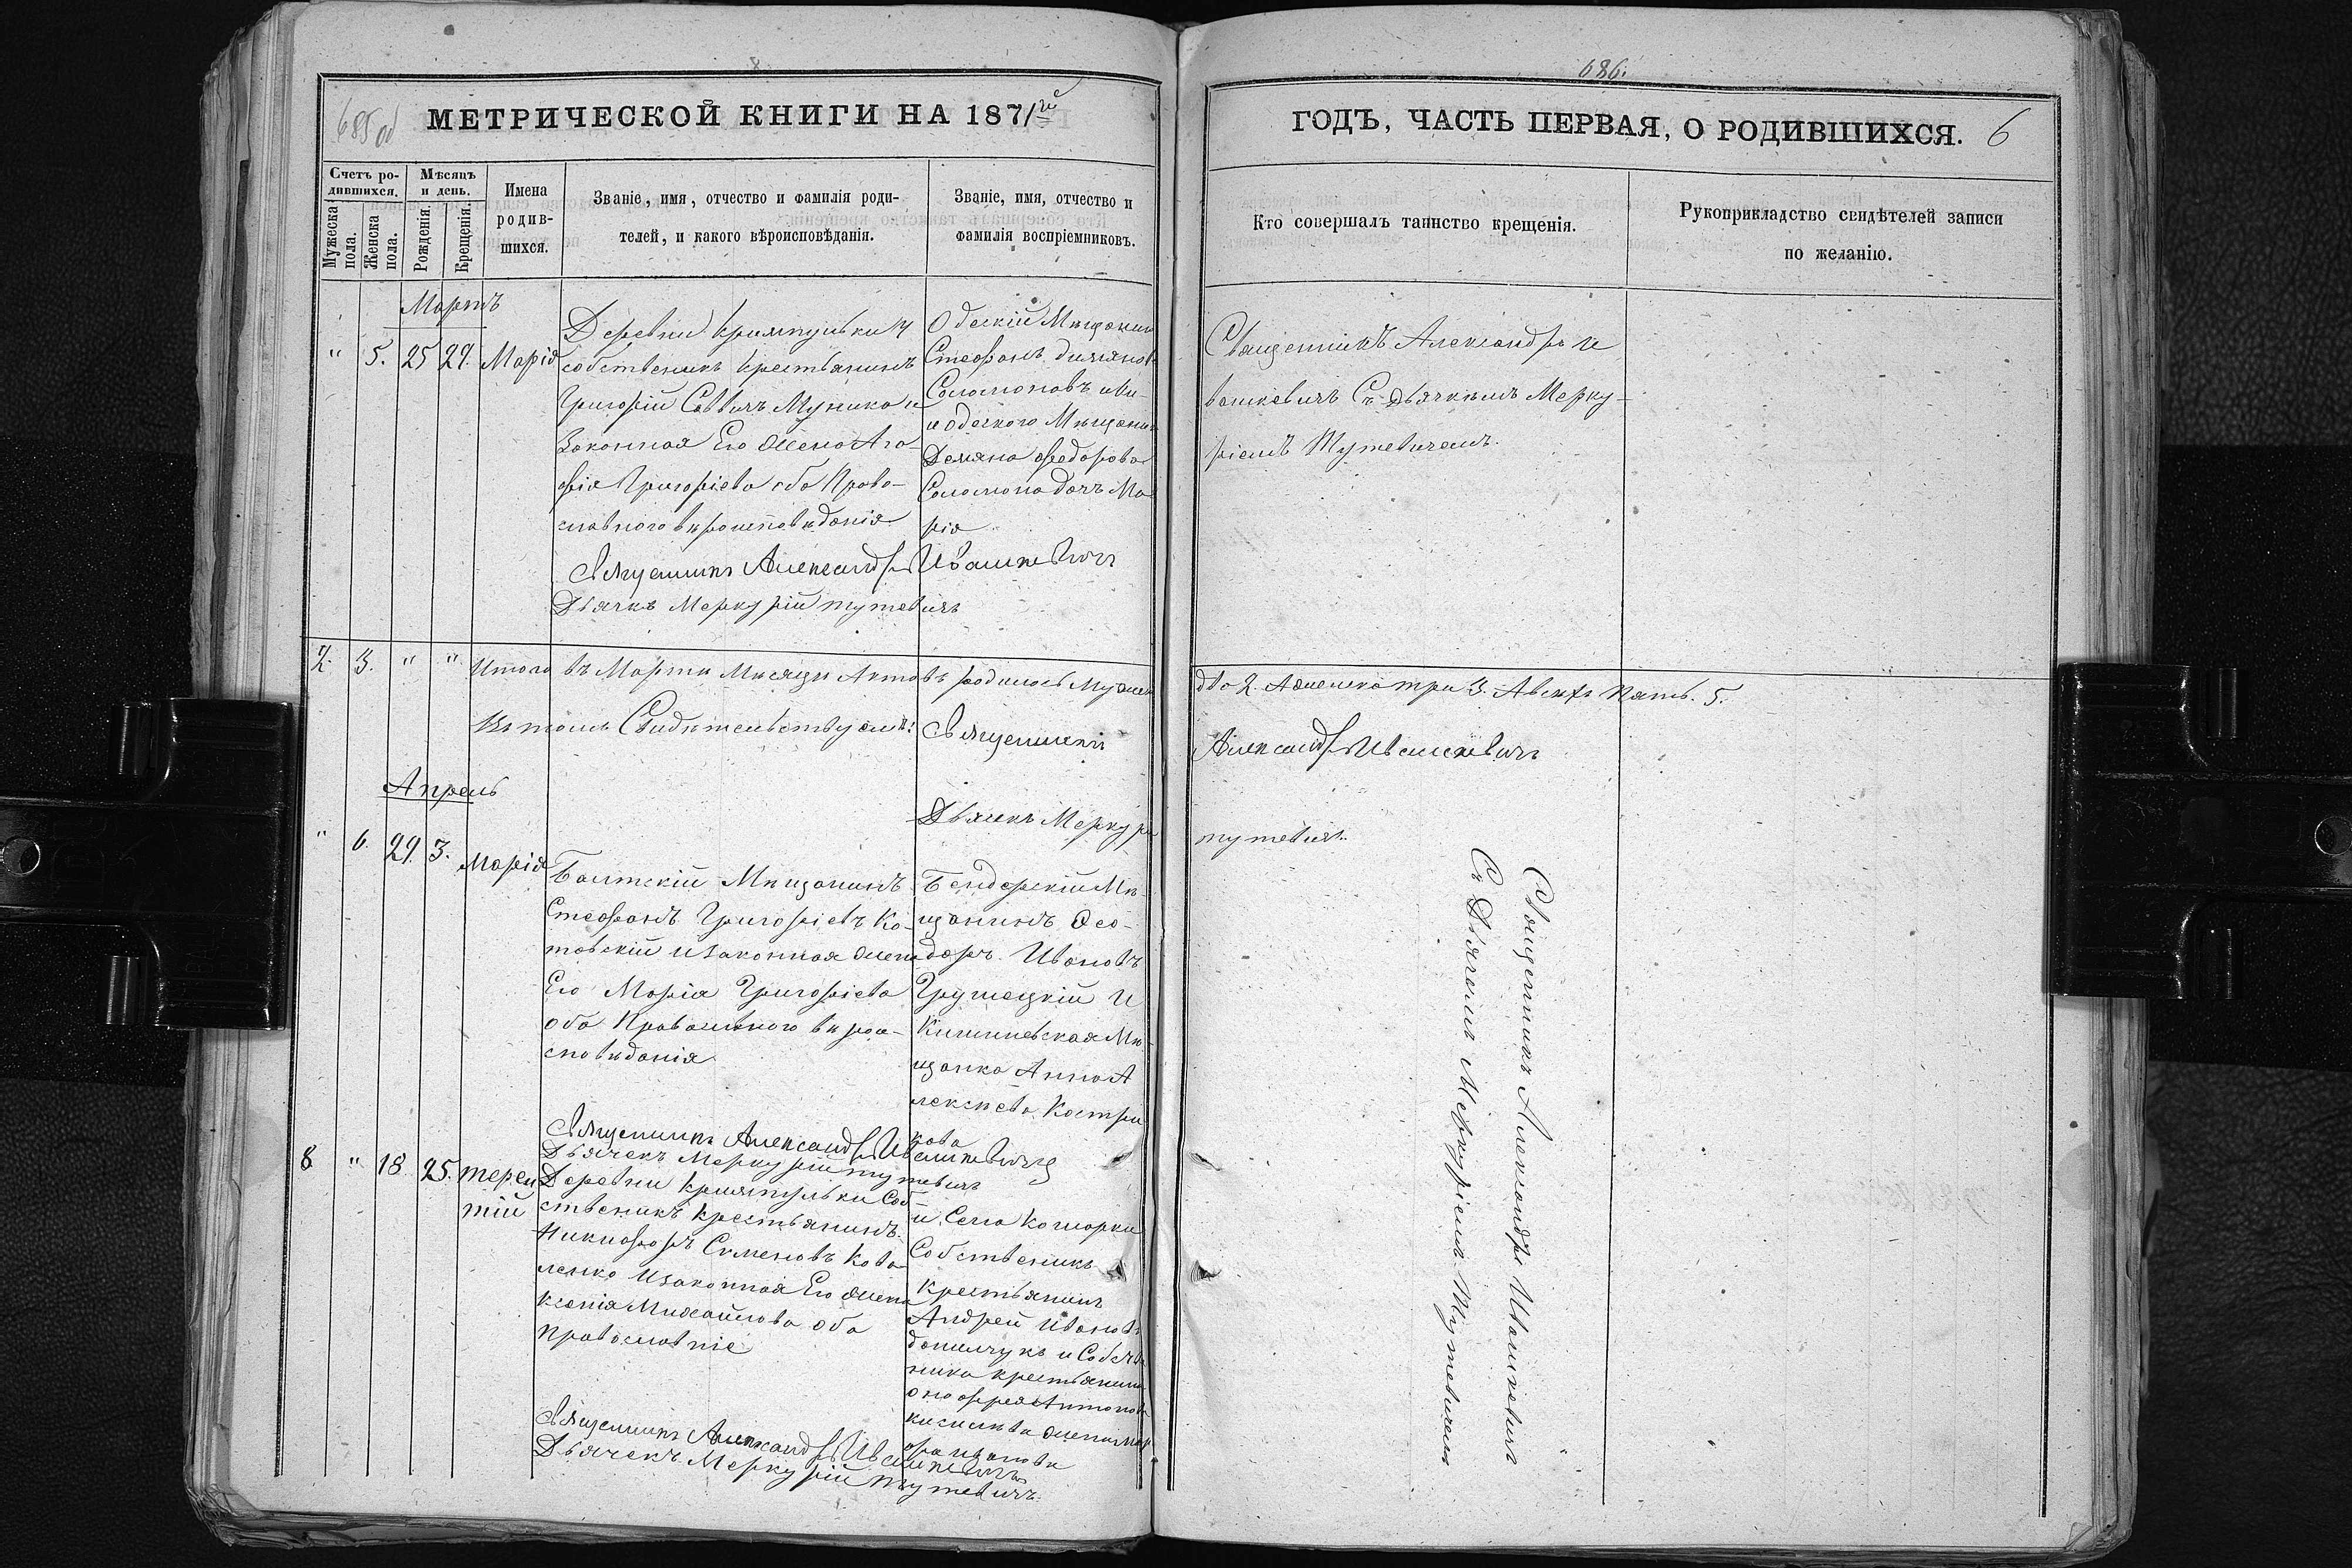 8
685 об
МЕТРИЧЕСКОЙ КНИГИ НА 1871й
Счетъ ро-
дившихся.
Мужеска
пола.
Женска
пола.
Мѣсяцъ
и день.
Рожденія.
Крещенія.
Имена
родив-
шихся.
Званіе, имя, отчество и фамилія роди-
телей, и какого вѣроисповѣданія.
Званіе, имя, отчество и
фамилія воспріемниковъ.
Мартъ
" 5. 25 29. Марія
Деревни
собственикъ крестьянинъ
Григорій Саввичъ Мунико и
Законная Его Жена Ага
фія Григоріева оба Право-
славного вѣроисповѣданія
Священникъ Александръ Ивашкевичъ
Дьячкъ Меркурій Тутевичъ
Одескій Мѣщанин
Стефанъ
Соломоновъ
и Одеского Мѣщанин
Демяна Федорова
Соломона дочь Ма
рія
2. 3. " " Итого въ Марти Мисяци Актовъ родилось Мужеск
Въ томъ Свидѣтельствуемъ: Священникъ
Дьячкъ Меркурі
Апрель
" 6. 29. 3. Марія
Балтскій Мищанинъ
Стефанъ Григоріевъ Ко-
товскій и законная жена
Его Марія Григоріева
оба Православного вѣрои-
сповиданія
Священникъ Александръ Ивашкевичъ
Дьячекъ Меркурій Тутевичъ
Бендерскій Мѣ-
щанинъ Фео-
доръ Ивановъ
Грушецкій И
Кишиневская Мѣ-
щанка Анна А
лексѣева Костри
кова
8 " 18 25. Терен
тій
Деревни Соб-
ственикъ крестьянинъ
Никифоръ Семеновъ Кова
ленко И законная Его жена
Ксенія Михайлова оба
Православніе
Священникъ Александръ Ивашкевичъ
Дьячекъ Меркурій Тутевичъ
и Села Коморки
Собственикъ
Крестьянинъ
Андрей Ивановъ
и Собств
ника крестьянин
Онофрея Антонов
жена Мар
фа Иванова
686.
ГОДЪ, ЧАСТЬ ПЕРВАЯ, О РОДИВШИХСЯ. 6
Кто совершалъ таинство крещенія.
Рукоприкладство свидѣтелей записи
по желанію.
Священникъ Александръ И
вашкевичъ Съ Дьячкомъ Мерку-
ріемъ Тутевичемъ.
два 2. Аженска три 3. Авсихъ Пять. 5.
Александръ Ивашкевичъ
Тутевичъ.
Священникъ Александръ Ивашкевичъ
Съ Дьячомъ Меркуріемъ Тутевичемъ